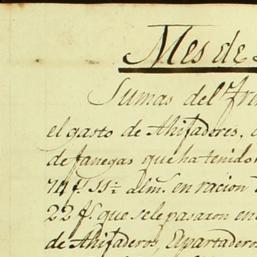 Mes de
Sumas del
el gasto de Ahijadores,
de fanegas que ha tenido
74 f.s 11½ alm.s en racion
22 f.s que se le pasaron en
de Ahijaderos, Apartaderos